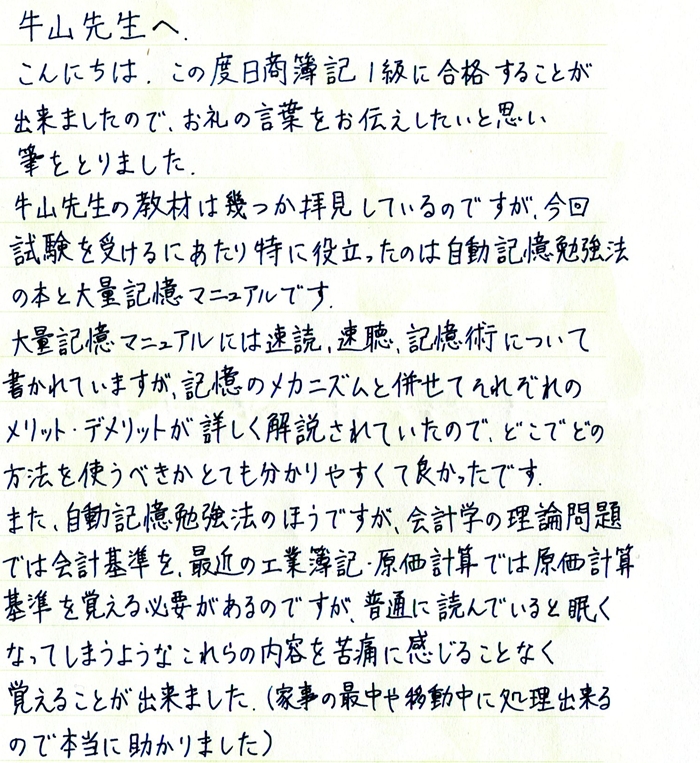 牛山先生へ.
こんにちは. この度日商簿記1級に合格することが
出来ましたので、お礼の言葉をお伝えしたいと思い
筆をとりました.
牛山先生の教材は幾つか拝見しているのですが、今回
試験を受けるにあたり特に役立ったのは自動記憶勉強法
の本と大量記憶マニュアルです.
大量記憶マニュアルには速読、速聴、記憶術について
書かれていますが、記憶のメカニズムと併せてそれぞれの
メリット・デメリットが詳しく解説されていたので、どこでどの
方法を使うべきかとても分かりやすくて良かったです.
また、自動記憶勉強法のほうですが、会計学の理論問題
では会計基準を、最近の工業簿記・原価計算では原価計算
基準を覚える必要があるのですが、普通に読んでいると眠く
なってしまうようなこれらの内容を苦痛に感じることなく
覚えることが出来ました.(家事の最中や移動中に処理出来る
ので本当に助かりました)